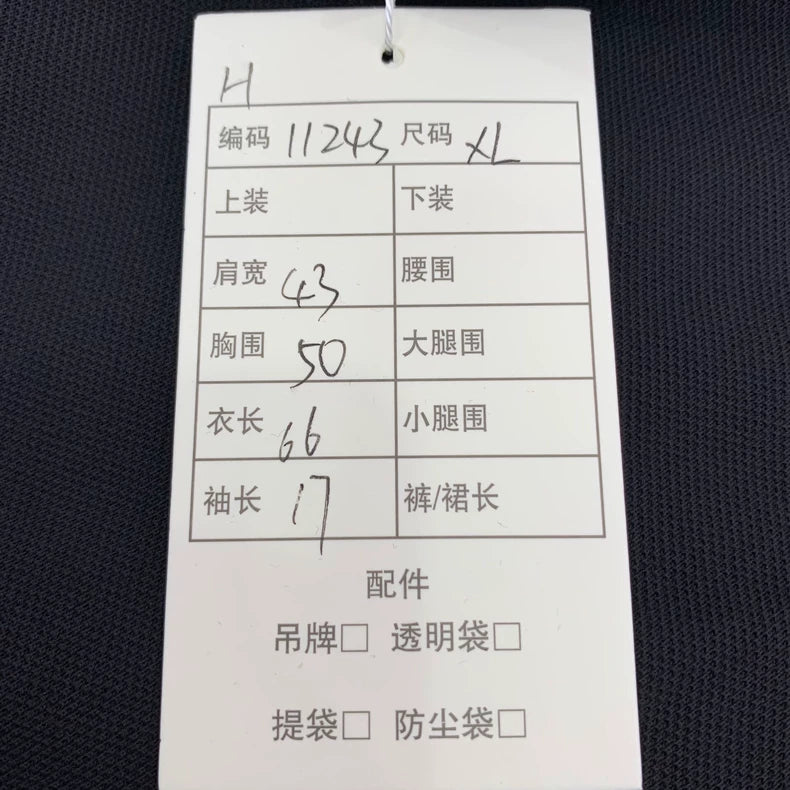 H
编码 11243 尺码 XL
上装 下装
肩宽 43 腰围
胸围 50 大腿围
衣长 66 小腿围
袖长 17 裤/裙长
配件
吊牌□ 透明袋□
提袋□ 防尘袋□